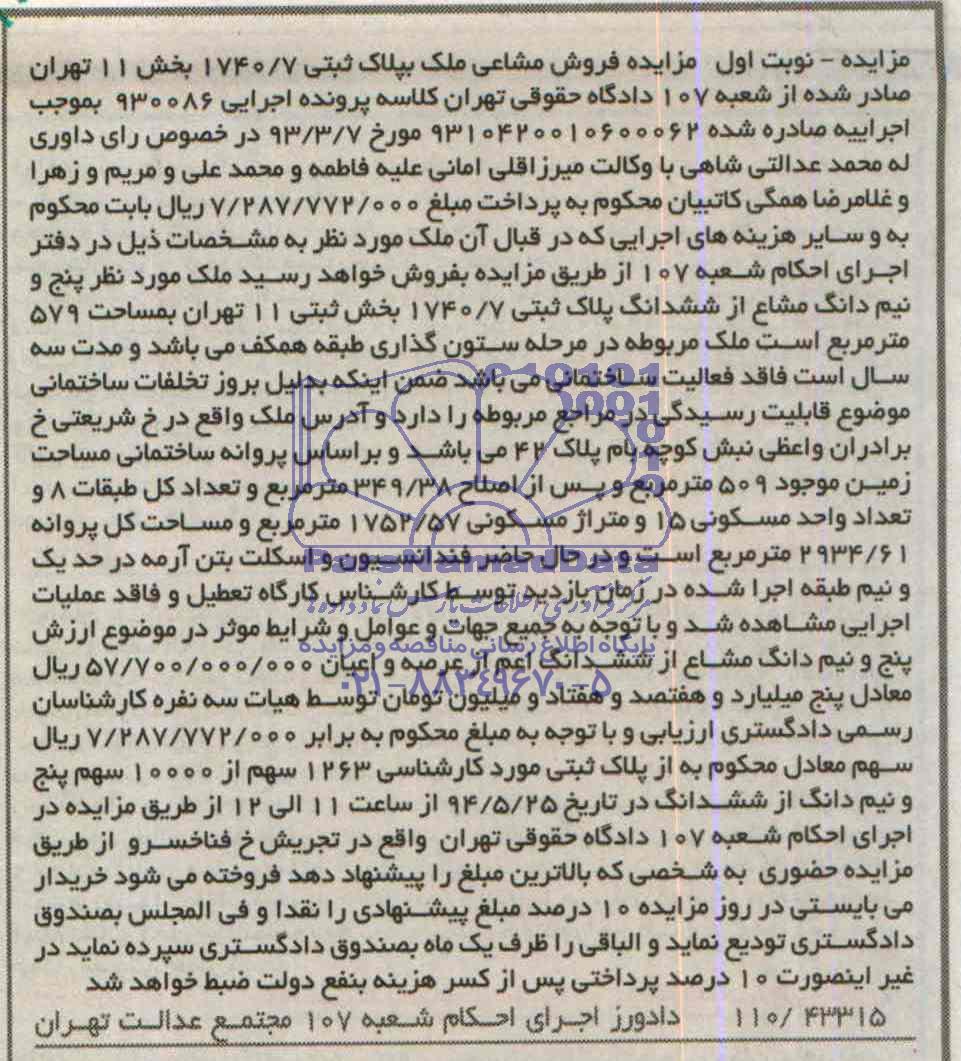 مزایده - نوبت اول مزایده فروش مشاعی ملک بپلاک ثبتی ۱۷۴۰/۷ بخش ۱۱ تهران
صادر شده از شعبه ۱۰۷ دادگاه حقوقی تهران کلاسه پرونده اجرایی ۹۳۰۰۸۶ بموجب
اجراییه صادره شده ۹۳۱۰۴۲۰۰۱۰۶۰۰۰۶۲ مورخ ۹۳/۳/۷ در خصوص رای داوری
له محمد عدالتی شاهی با وکالت میرزاقلی امانی علیه فاطمه و محمد علی و مریم و زهرا
و غلامرضا همگی کاتبیان محکوم به پرداخت مبلغ ۷/۲۸۷/۷۷۲/۰۰۰ ریال بابت محکوم
به و سایر هزینه های اجرایی که در قبال آن ملک مورد نظر به مشخصات ذیل در دفتر
اجرای احکام شعبه ۱۰۷ از طریق مزایده بفروش خواهد رسید ملک مورد نظر پنج و
نیم دانگ مشاع از ششدانگ پلاک ثبتی ۱۷۴۰/۷ بخش ثبتی ۱۱ تهران بمساحت ۵۷۹
مترمربع است ملک مربوطه در مرحله ستون گذاری طبقه همکف می باشد و مدت سه
سال است فاقد فعالیت ساختمانی می باشد ضمن اینکه بدلیل بروز تخلفات ساختمانی
موضوع قابلیت رسیدگی در مراجع مربوطه را دارد و آدرس ملک واقع در خ شریعتی خ
برادران واعظی نبش کوچه بام پلاک ۴۲ می باشد و براساس پروانه ساختمانی مساحت
زمین موجود ۵۰۹ مترمربع و پس از اصلاح ۳۴۹/۳۸ مترمربع و تعداد کل طبقات ۸ و
تعداد واحد مسکونی ۱۵ و متراژ مسکونی ۱۷۵۲/۵۷ مترمربع و مساحت کل پروانه
۲۹۳۴/۶۱ مترمربع است و در حال حاضر فندانسیون و اسکلت بتن آرمه در حد یک
و نیم طبقه اجرا شده در زمان بازدید توسط کارشناس کارگاه تعطیل و فاقد عملیات
اجرایی مشاهده شد و با توجه به جمیع جهات و عوامل و شرایط موثر در موضوع ارزش
پنج و نیم دانگ مشاع از ششدانگ اعم از عرصه و اعیان ۵۷/۷۰۰/۰۰۰/۰۰۰ ریال
معادل پنج میلیارد و هفتصد و هفتاد و میلیون تومان توسط هیات سه نفره کارشناسان
رسمی دادگستری ارزیابی و با توجه به مبلغ محکوم به برابر ۷/۲۸۷/۷۷۲/۰۰۰ ریال
سهم معادل محکوم به از پلاک ثبتی مورد کارشناسی ۱۲۶۳ سهم از ۱۰۰۰۰ سهم پنج
و نیم دانگ از ششدانگ در تاریخ ۹۴/۵/۲۵ از ساعت ۱۱ الی ۱۲ از طریق مزایده در
اجرای احکام شعبه ۱۰۷ دادگاه حقوقی تهران واقع در تجریش خ فناخسرو از طریق
مزایده حضوری به شخصی که بالاترین مبلغ را پیشنهاد دهد فروخته می شود خریدار
می بایستی در روز مزایده ۱۰ درصد مبلغ پیشنهادی را نقدا و فی المجلس بصندوق
دادگستری تودیع نماید و الباقی را ظرف یک ماه بصندوق دادگستری سپرده نماید در
غیر اینصورت ۱۰ درصد پرداختی پس از کسر هزینه بنفع دولت ضبط خواهد شد
۱۱۰/ ۴۳۳۱۵ دادورز اجرای احکام شعبه ۱۰۷ مجتمع عدالت تهران
ParsNamadData
پایگاه اطلاع رسانی مناقصه و مزایده
۰۲۱-۸۸۳۴۹۶۷۰-۵